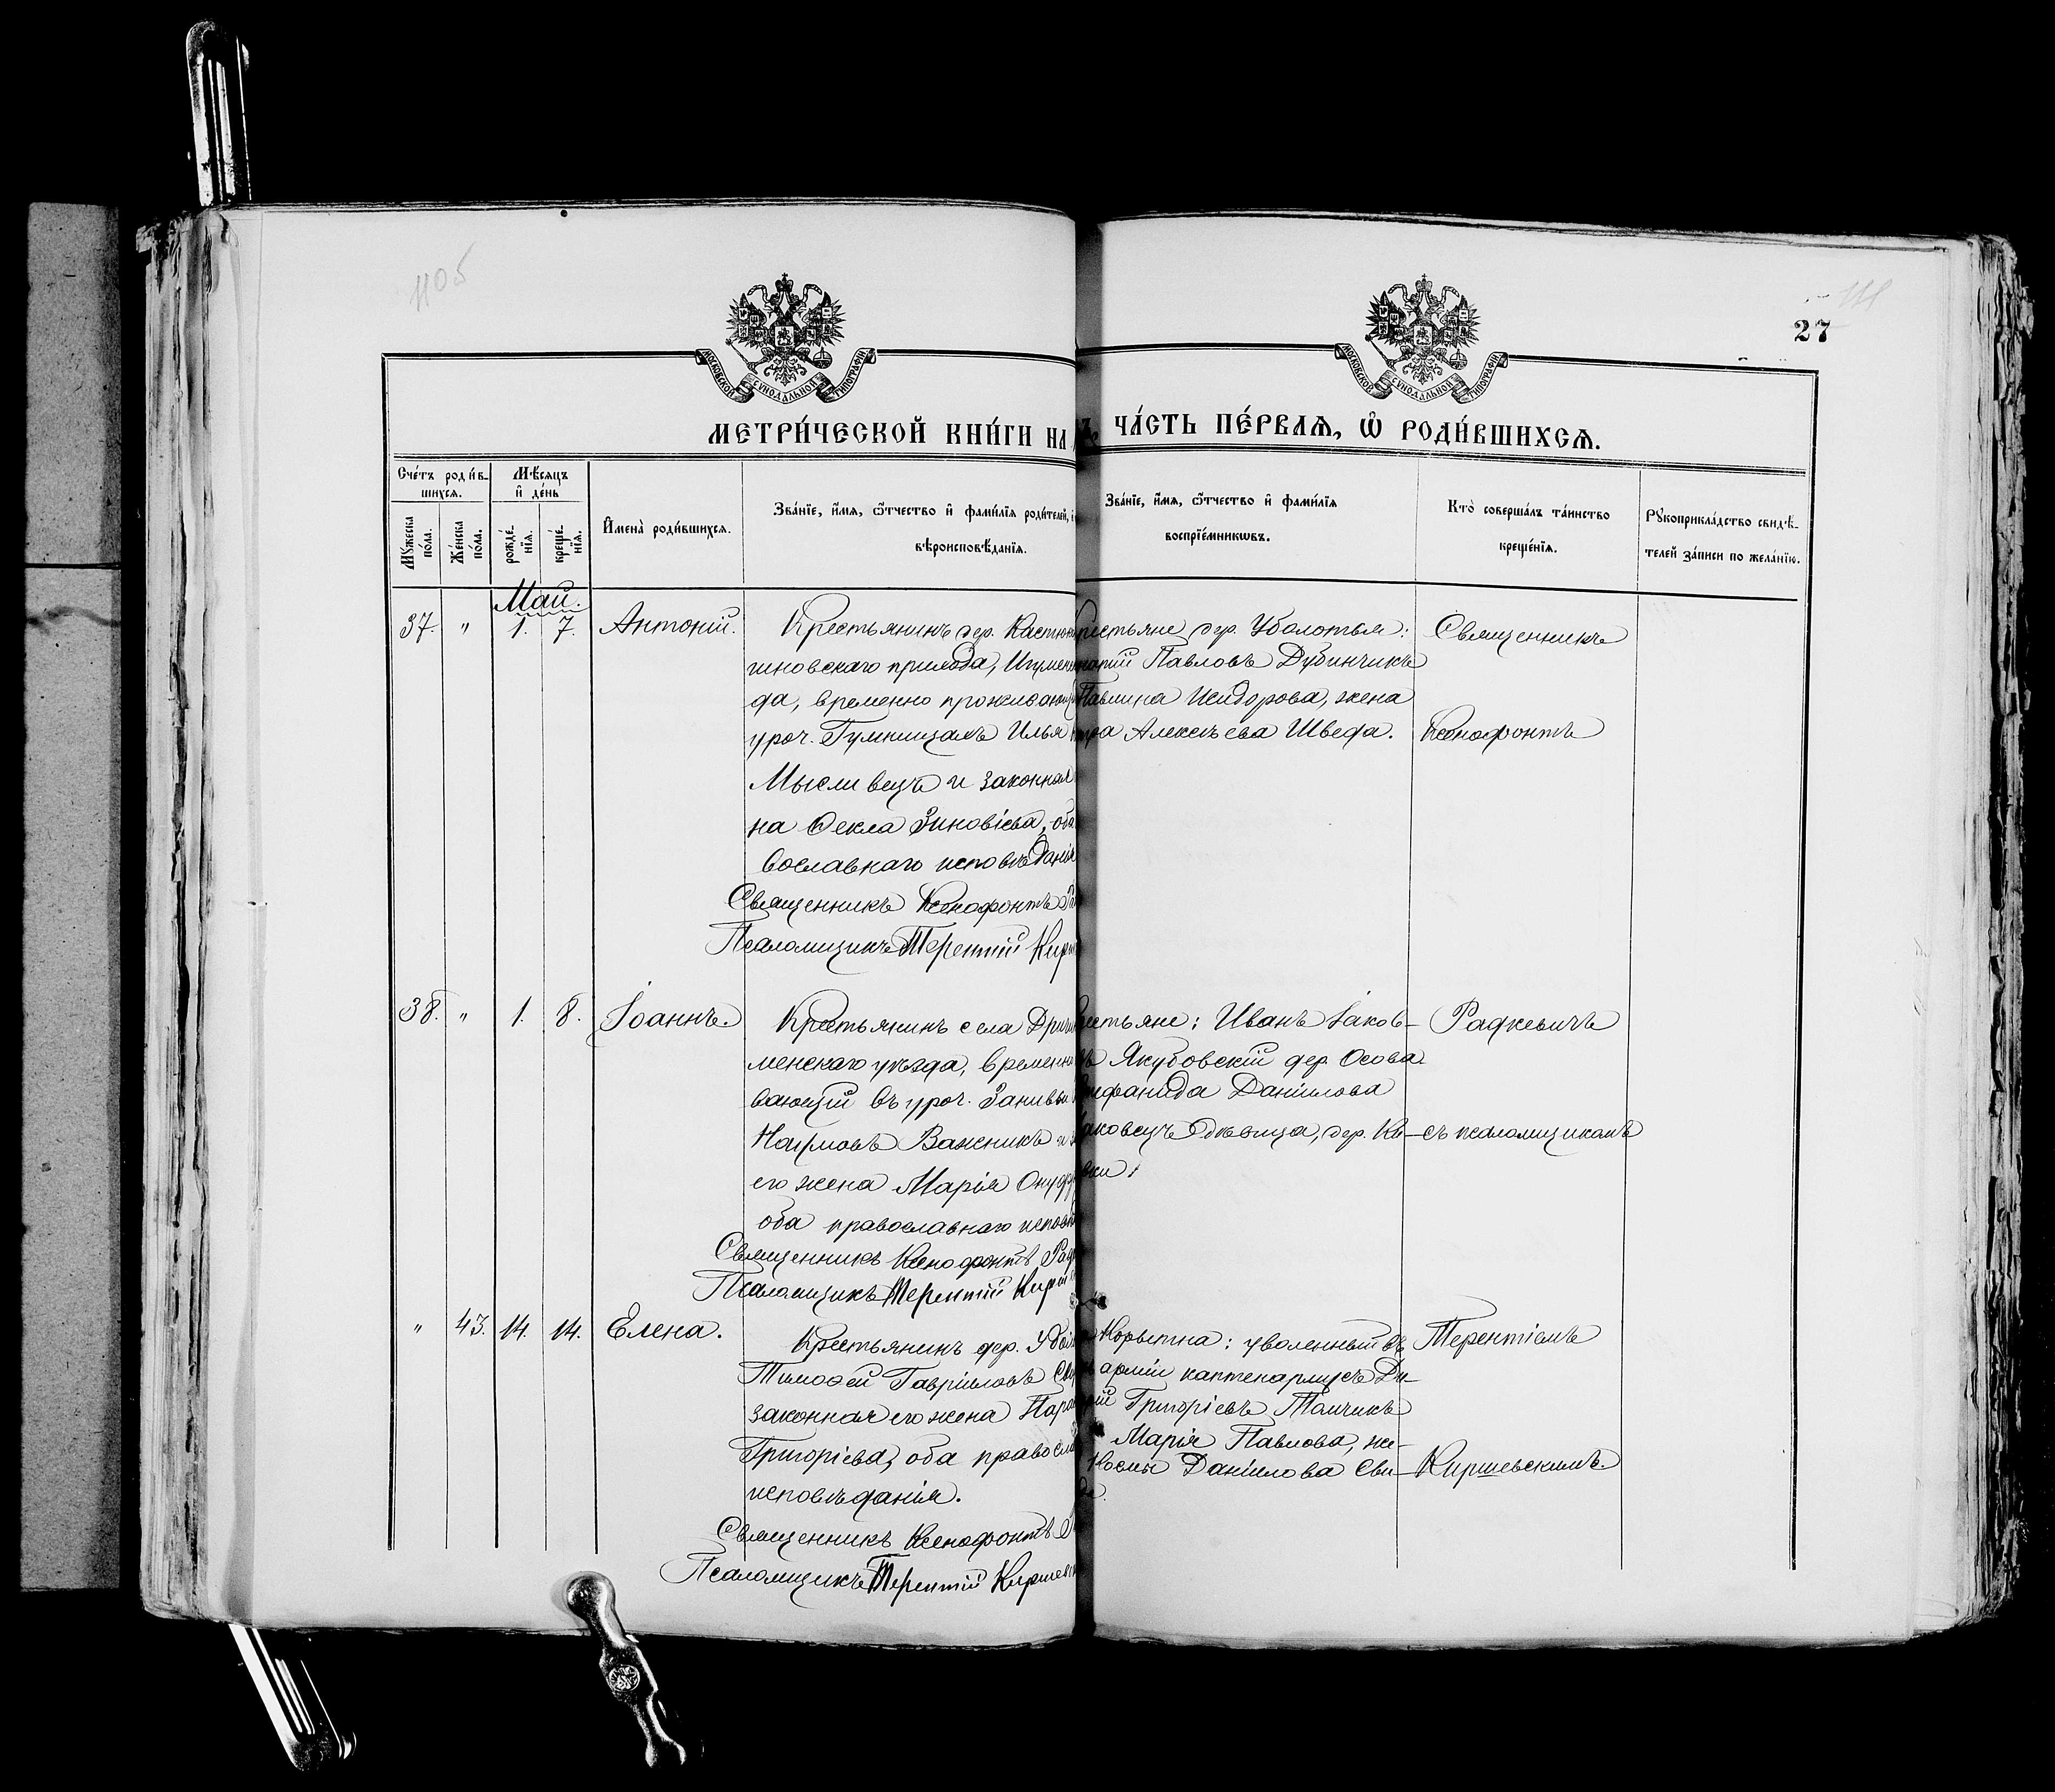 1105
111
27
МОСКОВСКОЙ СѴНОДАЛЬНОЙ ТИПОГРАФІИ
МОСКОВСКОЙ СѴНОДАЛЬНОЙ ТИПОГРАФІИ
МЕТРИ́ЧЕСКОЙ КНИ́ГИ НА
ЧА́СТЬ ПЕ́РВАѦ, Ѡ҆ РОДИ́ВШИХСѦ.
Сче́тъ роди́в-
шихсѧ.
Мꙋ́жеска по́ла.
Же́нска по́ла.
Мѣ́сѧцъ
и҆ де́нь
рожде́-
нїѧ.
креще́-
нїѧ.
И҆мена̀ роди́вшихсѧ.
Зва́нїе, и҆́мѧ, ѻ҆́тчество и҆ фами́лїѧ роди́телей,
вѣроисповѣ́данїѧ.
Зва́нїе, и҆́мѧ, ѻ҆́тчество и҆ фами́лїѧ
воспрїе́мникѡвъ.
Кто̀ соверша́лъ та́инство
креще́нїѧ.
Рꙋкоприкла́дство свидѣ́-
телей за́писи по жела́нїю.
Май.
37. " 1. 7. Антоній.
Крестьянинъ дер. Кастю
гиновскаго прихода, Игумен
да, временно проживающ
уроч. Гумнищахъ Илья
Мысливецъ и законная
на Ѳекла Зиновіева, оба
вославнаго исповѣданія
Священникъ Ксенофонтъ Ра
Псаломщикъ Терентій Кирш
рестьяне дер. Уболотья:
Павловъ Дубинчикъ
Павлина Исидорова, жена
Алексѣева Шведа.
Священникъ
Ксенофонтъ
38. " 1. 8. Іоаннъ.
Крестьянинъ села Дричи
менскаго уѣзда, временно
вающій въ уроч. Занивьи
Наумовъ Важникъ и
его жена Марія Онуф
оба православнаго исповѣ
Священникъ Ксенофонтъ Рад
Псаломщикъ Терентій Кирш
рестьяне: Иванъ Іаков-
ъ Якубовскій дер. Осова
ифанида Даніилова
дер. Ки-
вки.
Радкевичъ
съ псаломщикомъ
" 43. 14. 14. Елена.
Крестьянинъ дер. Убол
Тимоѳей Гавріиловъ Сви
законная его жена Пара
Григоріева, оба правосла
исповѣданія.
Священникъ Ксенофонтъ Р
Псаломщикъ Терентій Киршевск
Корытна: уволенный въ
арміи каптенармусъ Ди-
рій Григоріевъ Томчикъ
Марія Павлова, же-
Космы Даніилова Сви-
да.
Терентіемъ
Киршевскимъ.